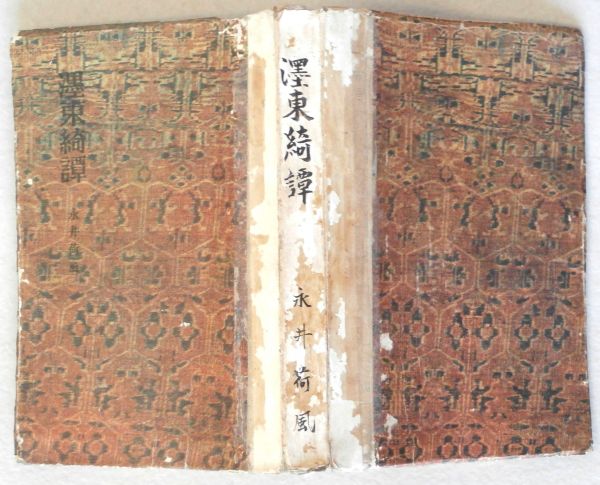 濹東綺譚
永井荷風
濹東綺譚
永井荷風